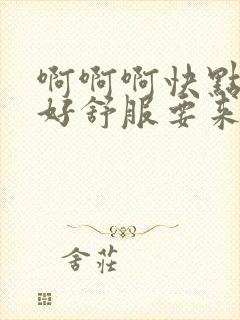 啊啊啊快點
好舒服要来
舍莊